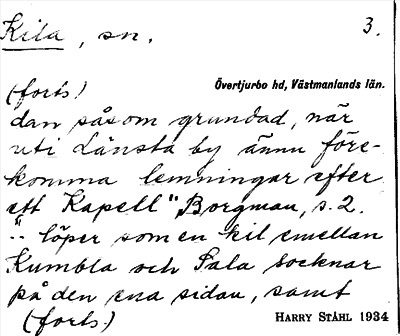 Kila, sn. 3.
Övertjurbo hd, Västmanlands län.
(forts.)
dan såsom grundad, när
uti Länsta by ännu före-
komma lemningar efter
ett Kapell" Borgman, s. 2.
".. löper som en kil emellan
Kumbla och Sala socknar
på den ena sidan, samt
(forts.) HARRY STÅHL 1934